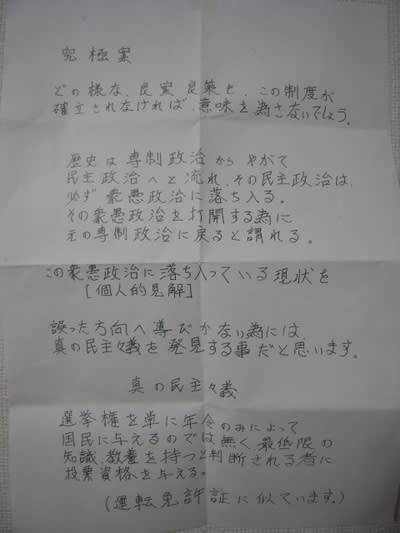 究極案
どの様な、良案 良策も、この制度が
確立されなければ 意味を為さないでしょう。
歴史は 専制政治から やがて
民主政治へと 流れ、その民主政治は、
必ず 衆愚政治に 落ち入る。
その衆愚政治を 打開する為に
元の専制政治に 戻ると 謂れる。
この衆愚政治に 落ち入っている 現状を
[個人的見解]
誤った方向へ 導びかない 為には、
真の民主々義を 発見する事だと思います。
真の民主々義
選挙権を 単に 年令のみによって
国民に与えるのでは 無く、最低限の
知識、教養を 持つと 判断される者に
投票資格を 与える。
(運転免許証に 似ています。)